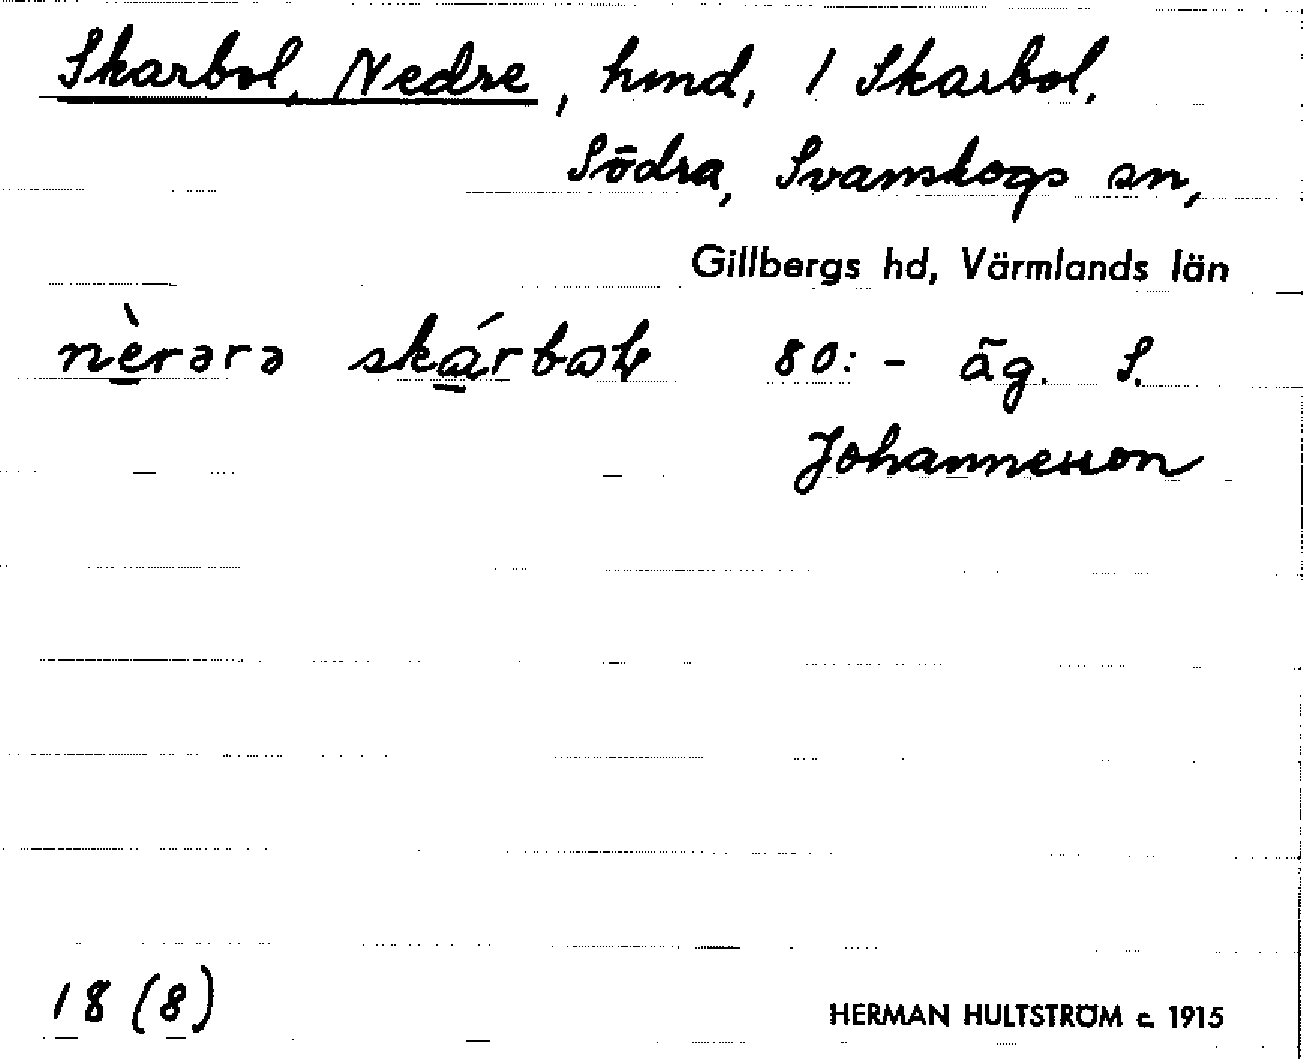 Skarbol, Nedre, hmd, 1 Skarbol,
Södra, Svanskogs sn,
Gillbergs hd, Värmlands län
nèrərə 80:- äg. S.
Johannesson
18 (8) HERMAN HULTSTRÖM c. 1915